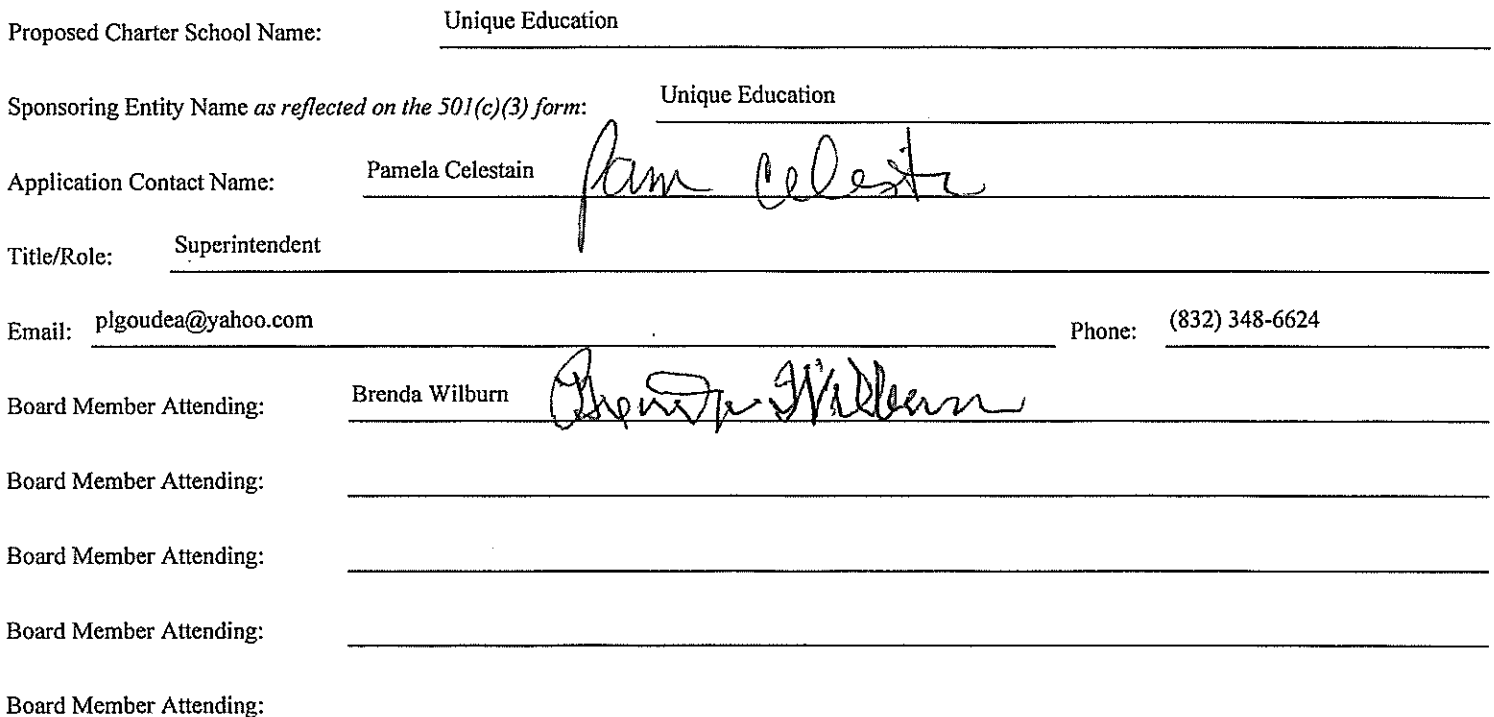 Proposed Charter School Name: Unique Education
Sponsoring Entity Name as reflected on the 501(c)(3) form: Unique Education
Application Contact Name: Pamela Celestain Pam Celestain
Title/Role: Superintendent
Email: plgoudea@yahoo.com Phone: (832) 348-6624
Board Member Attending: Brenda Wilburn Brenda Wilburn
Board Member Attending:
Board Member Attending:
Board Member Attending:
Board Member Attending: